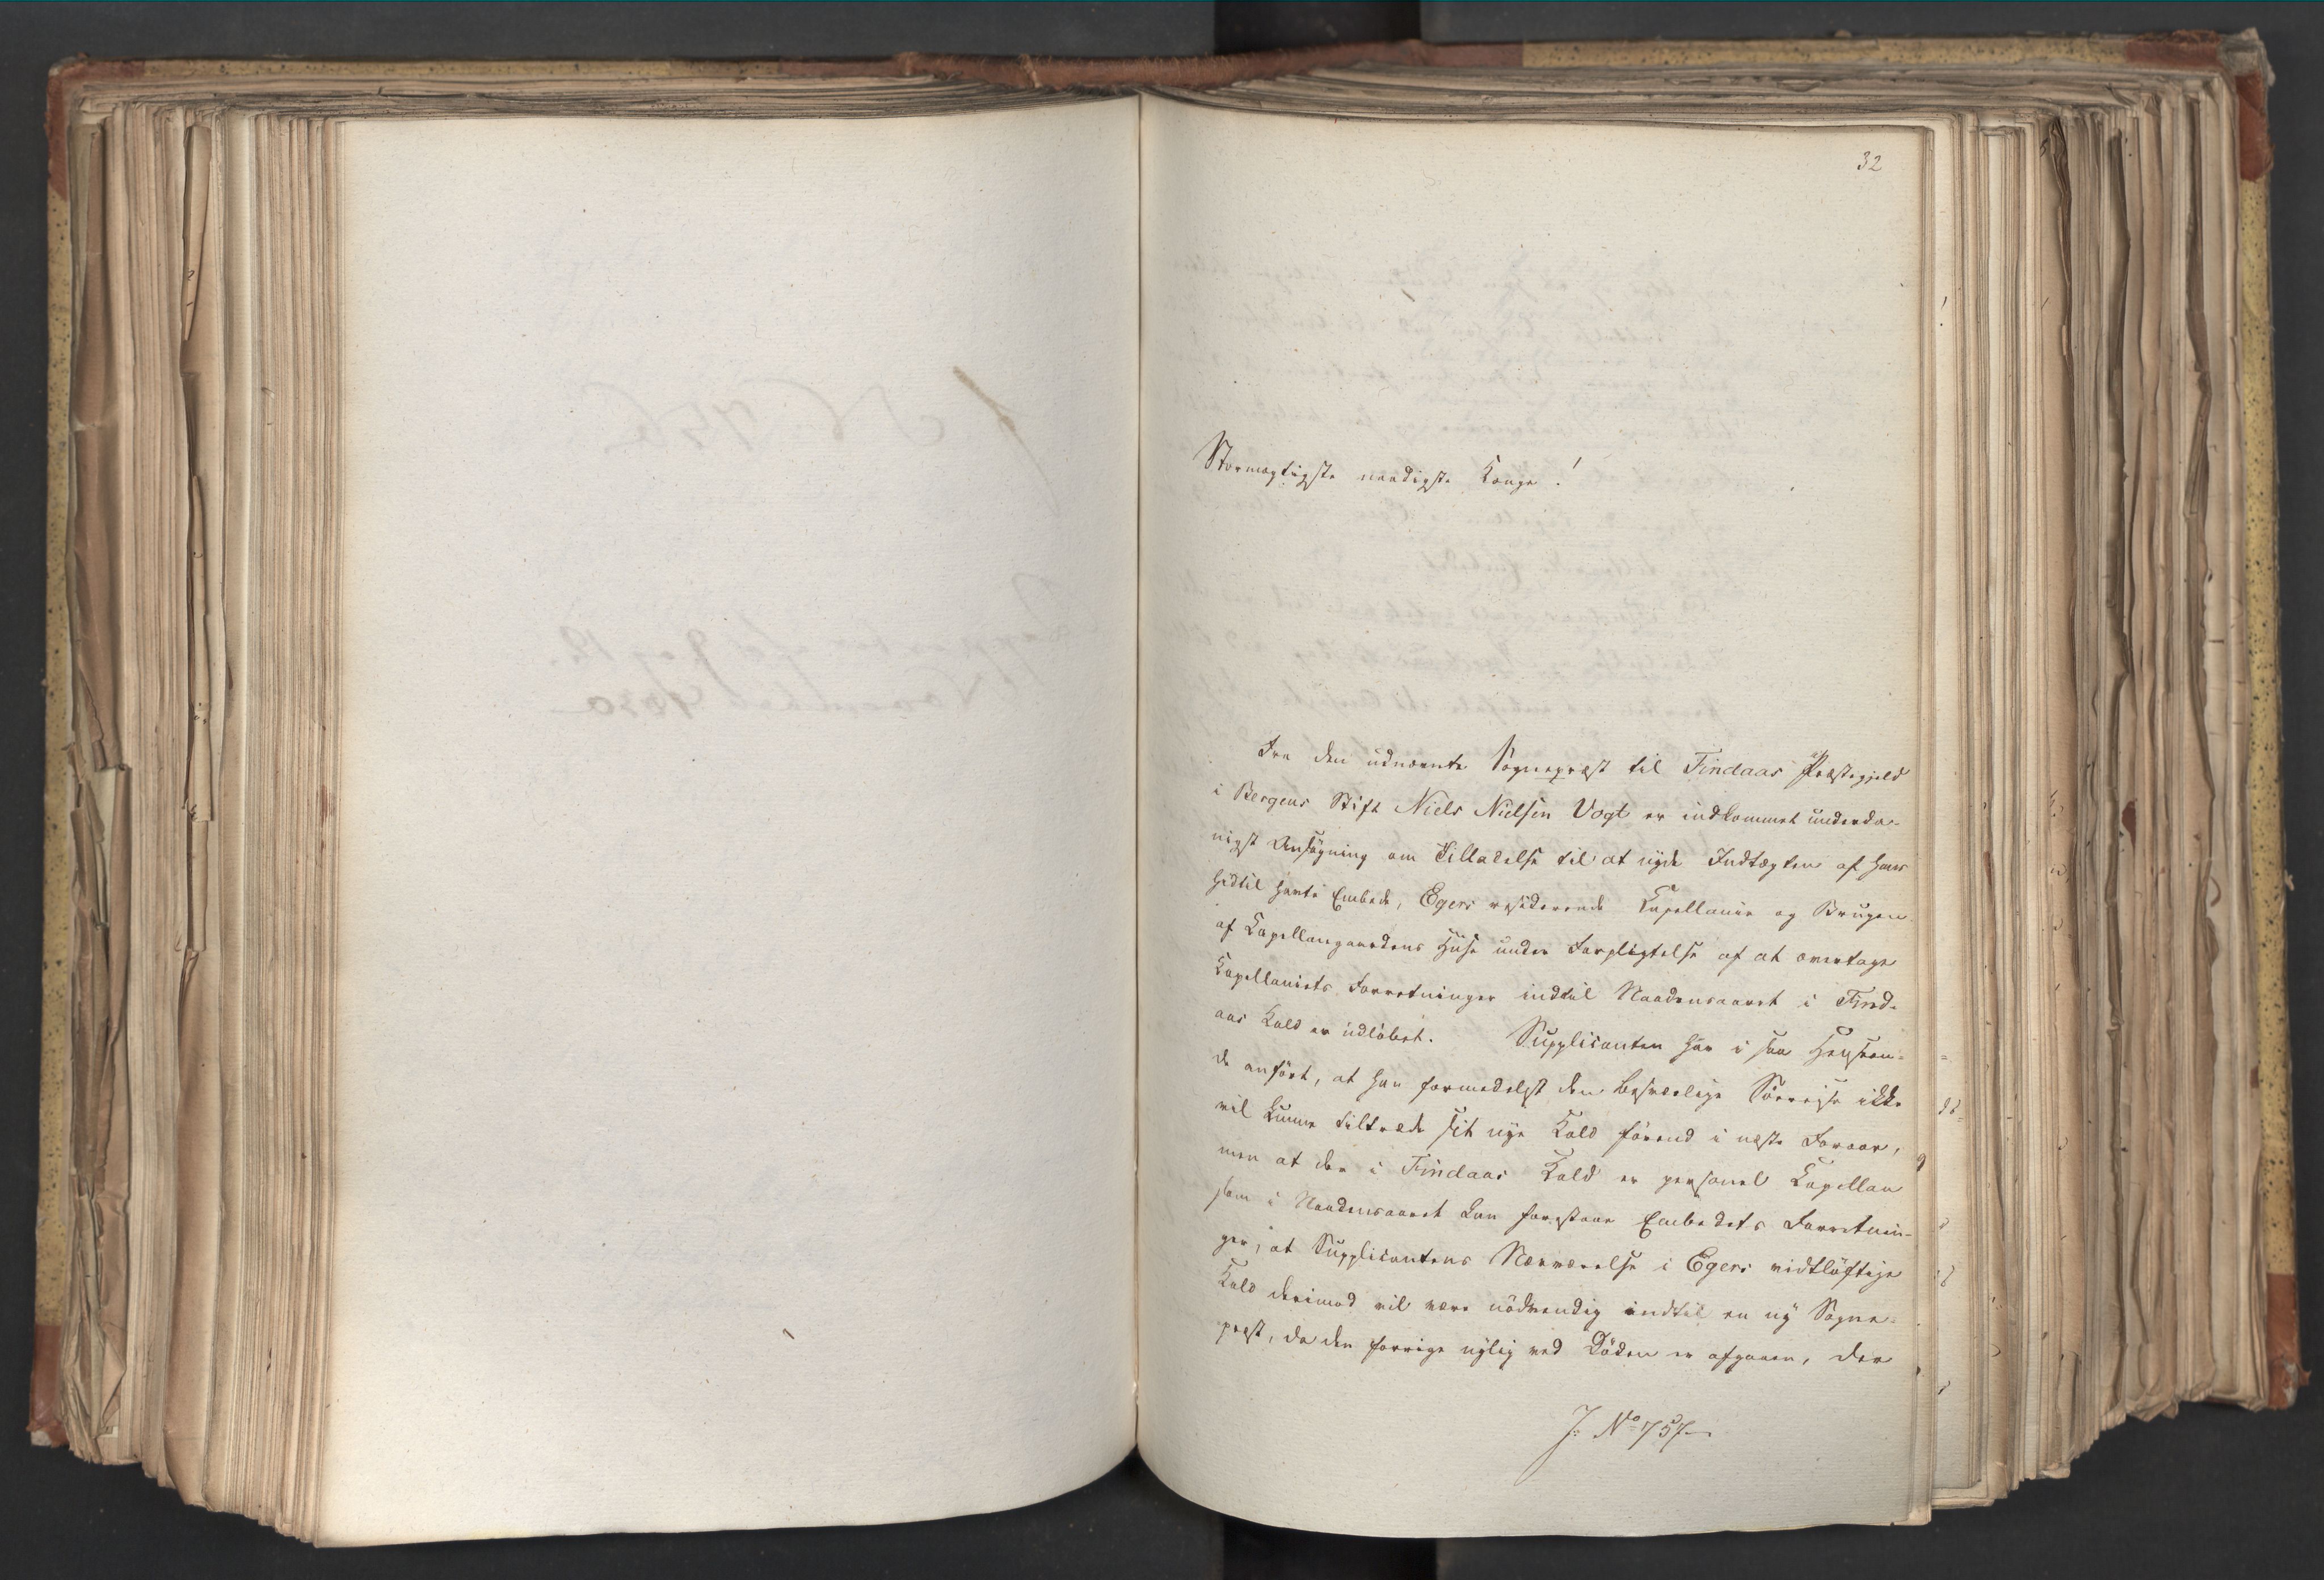 32
Stormægtigste naadigste Konge!
Fra den udnævnte Sognepræst til Findaas Præstegjeld
i Bergens Stift Niels Nielsen Vogt er indkommet underda-
nigst Ansøgning om Tilladelse til at nyde Indtægten af hans
hidtil havte Embede, Egers residerende Capellanie og Brugen
af Capellangaardens Huse under Forpligtelse af at overtage
Capellaniets Forretninger indtil Naadensaaret i Find-
aas Kald er udløbet. Supplicanten har i saa Henseen-
de anført, at han formedelst den besværlige Søereise ikke
vil kunne tiltræde sit nye Kald førend i næste Foraar,
men at der i Findaas Kald er personel Capellan
som i Naadensaaret kan forestaae Embedets Forretnin-
ger, at Supplicantens Nærværelse i Egers vidtløftige
Kald derimod vil være nødvendig indtil en ny Sogne-
præst, da den forrige nylig ved Døden er afgaaen, der
J: No 757